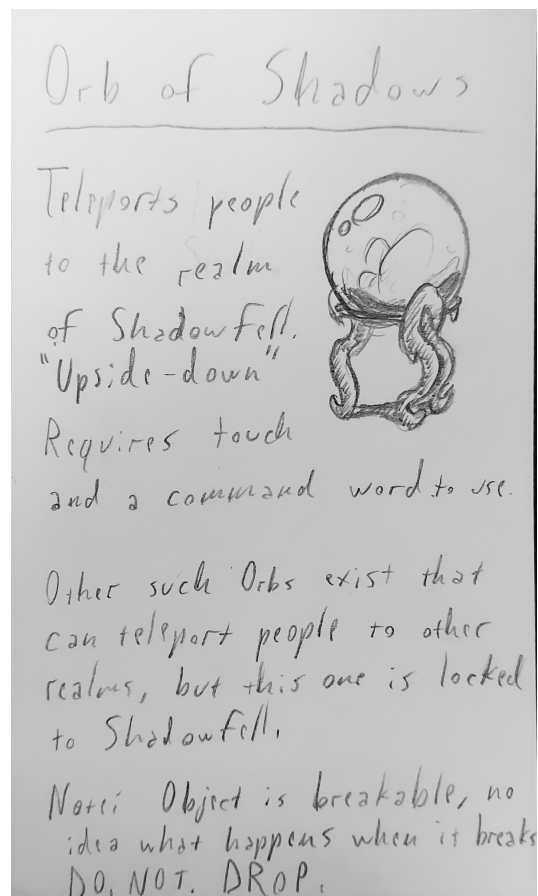 Orb of Shadows
Teleports people
to the realm
of Shadowfell.
"Upside-down"
Requires touch
and a command word to use.
Other such Orbs exist that
can teleport people to other
realms, but this one is locked
to Shadowfell.
Note: Object is breakable, no
idea what happens when it breaks
DO. NOT. DROP.